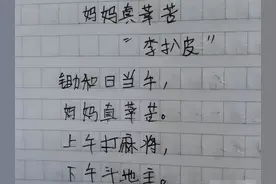 妈妈真辛苦
"李扒皮"
锄禾日当午,
妈妈真辛苦。
上午打麻将,
下午斗地主。